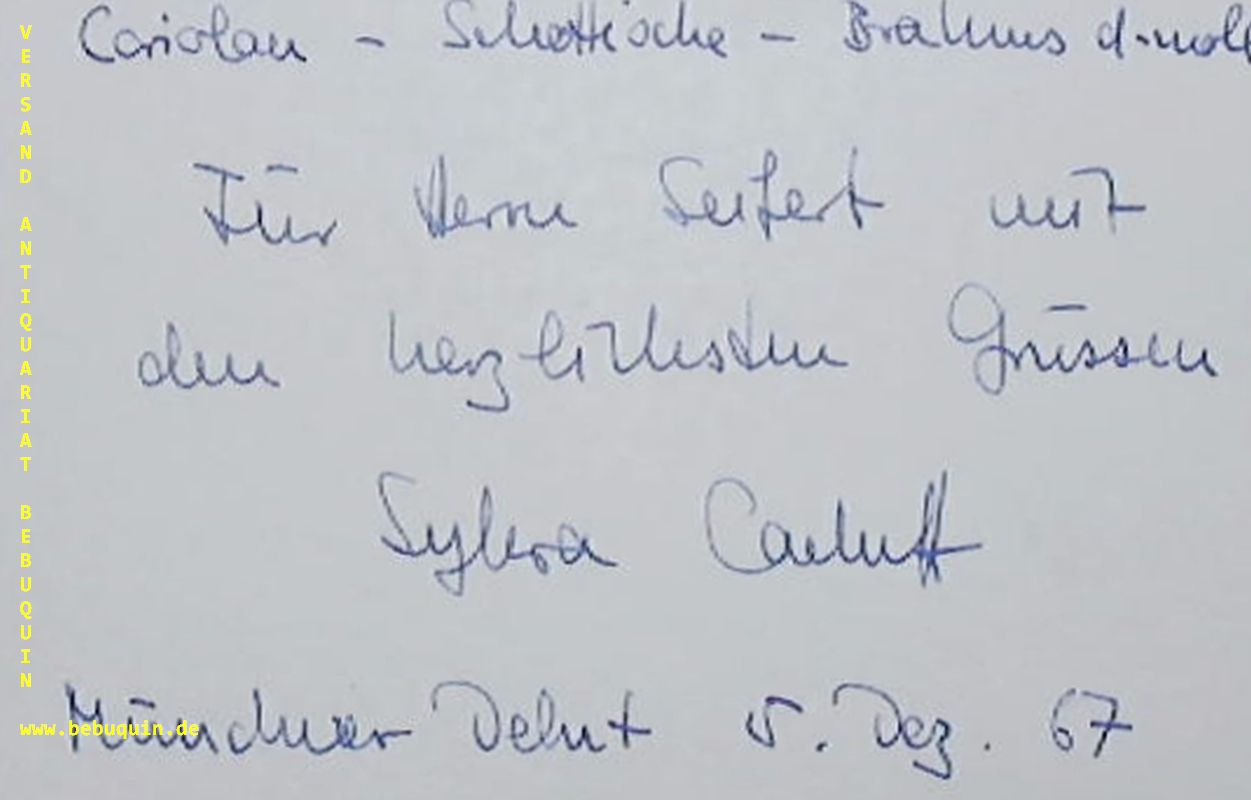 Coriolan - Schottische - Brahms d-moll
Für Herrn Seifert mit
den herzlichsten Grüssen
Sylvia Caduff
Münchner Debut 5. Dez. 67
VERSAND ANTIQUARIAT BEBUQUIN
www.bebuquin.de